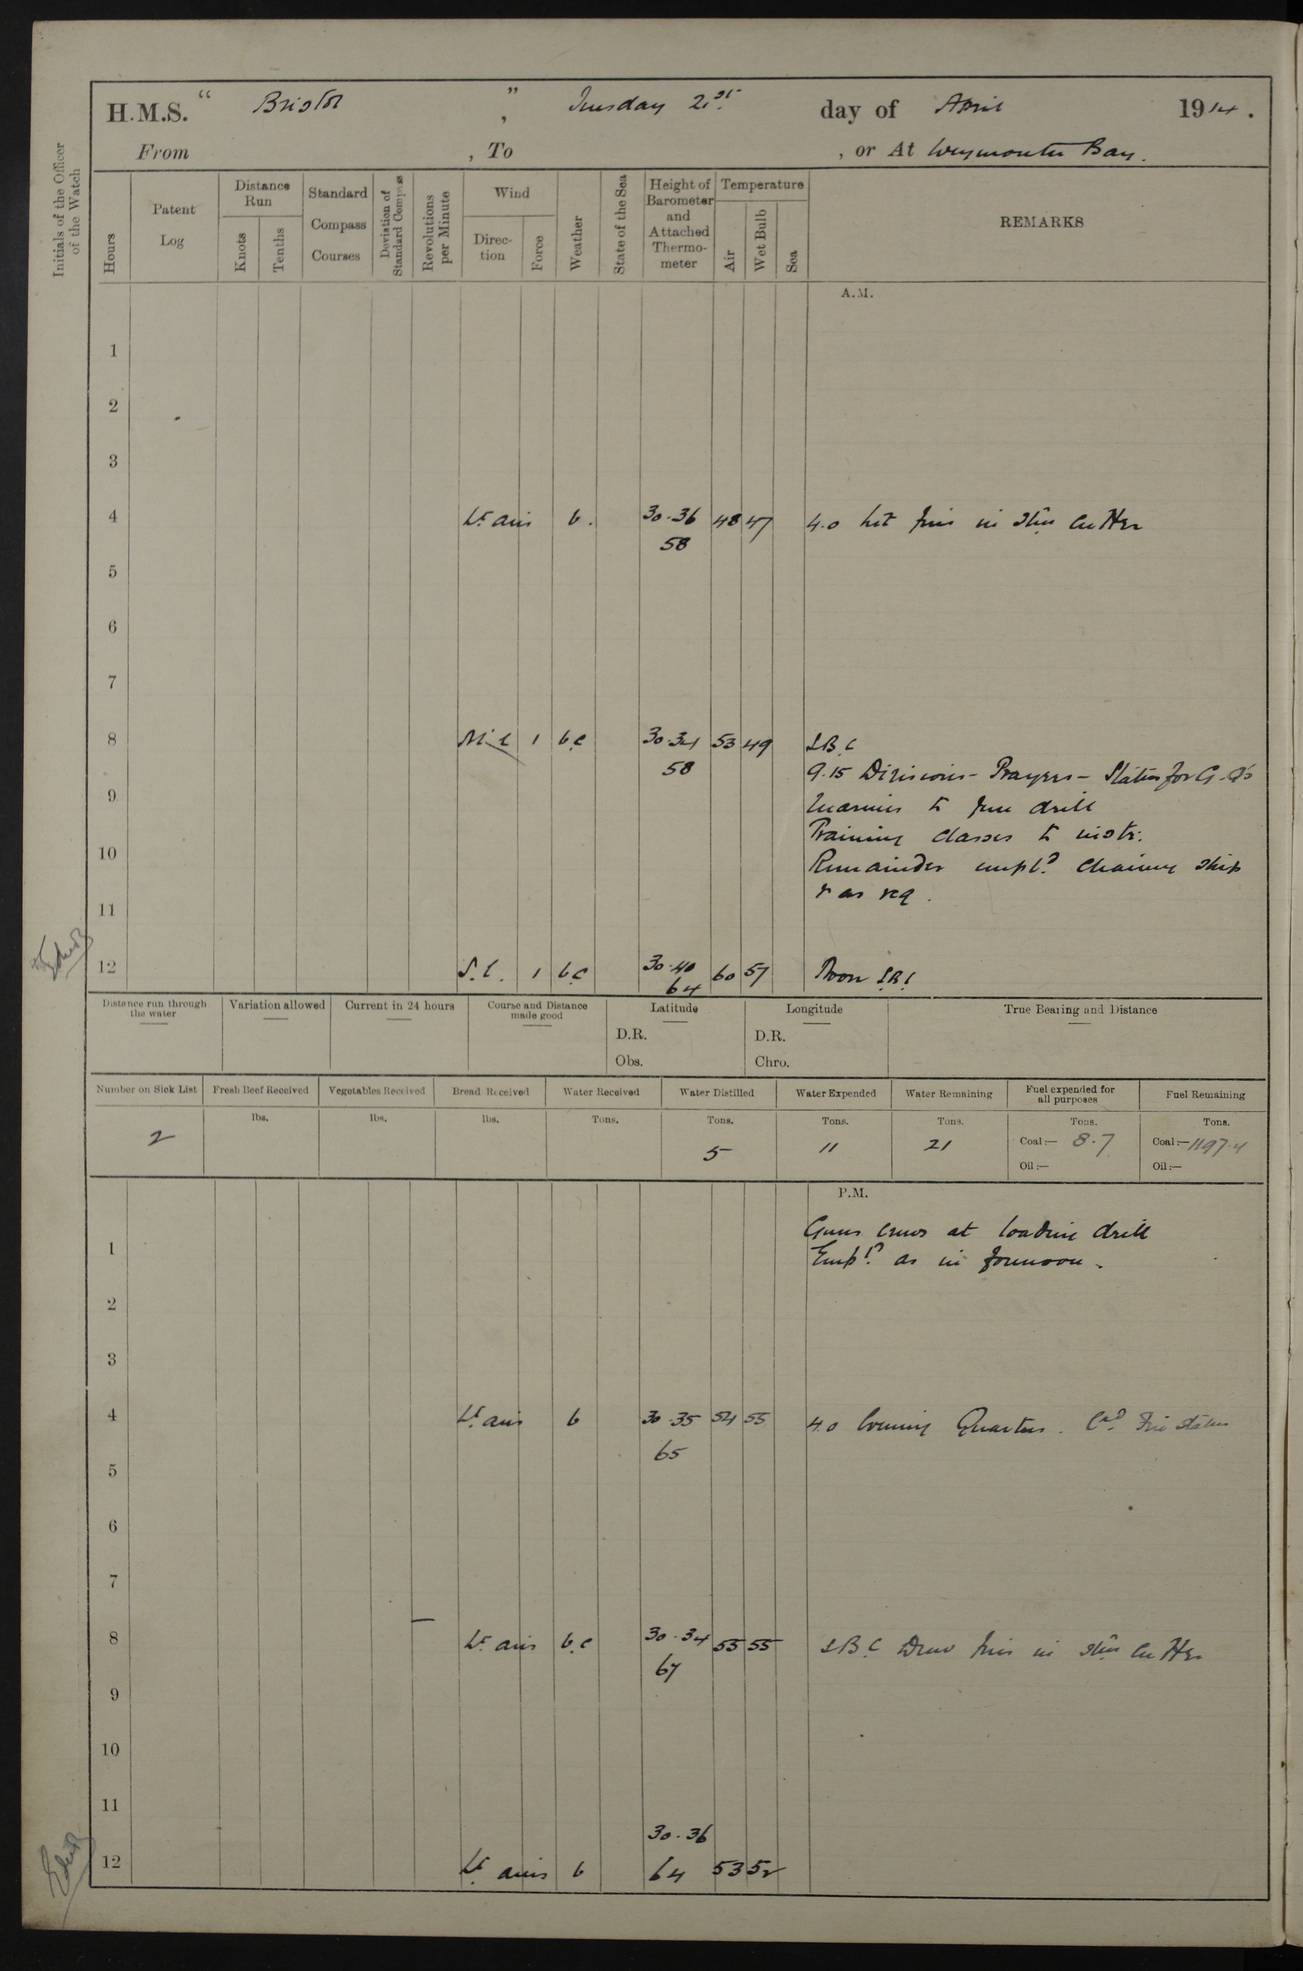 H.M.S. “ Bristol ” , Tuesday 21st day of April 1914.
From , To , or At Weymouth Bay.
Initials of the Officer of the Watch
Hours
Patent Log
Distance Run
Knots
Tenths
Standard Compass Courses
Deviation of Standard Compass
Revolutions per Minute
Wind
Direction
Force
Weather
State of the Sea
Height of Barometer and Attached Thermometer
Temperature
Air
Wet Bulb
Sea
REMARKS
A.M.
1
2
3
4 Lt airs b. 30.36 48 47 4.0 Lit fires in Stm Cutter
58
5
6
7
8 N.E 1 b.c 30.34 53 49 S.B.C
58 9.15 Divisions - Prayers - Station for G.Q's
9 Marines to fire drill
Training classes to instr.
10 Remainder empld cleaning ship
& as req.
11
12 S.E. 1 b.c 30.40 60 57 Noon S.B.C
64
Distance run through the water
Variation allowed
Current in 24 hours
Course and Distance made good
Latitude
D.R.
Obs.
Longitude
D.R.
Chro.
True Bearing and Distance
Number on Sick List
Fresh Beef Received
Vegetables Received
Bread Received
Water Received
Water Distilled
Water Expended
Water Remaining
Fuel expended for all purposes
Fuel Remaining
lbs. lbs. lbs. Tons. Tons. Tons. Tons. Tons. Tons.
2 5 11 21 Coal:— 8.7 Coal:— 1197.4
Oil:— Oil:—
P.M.
Guns crews at loading drill
1 Empld as in forenoon.
2
3
4 Lt airs b 30.35 54 55 4.0 Evening Quarters. Ex'd Fire station
65
5
6
7
8 Lt airs b.c 30.34 55 55 S.B.C Drew fires in Stm Cutter
67
9
10
11
30.36
12 Lt airs b 64 53 52